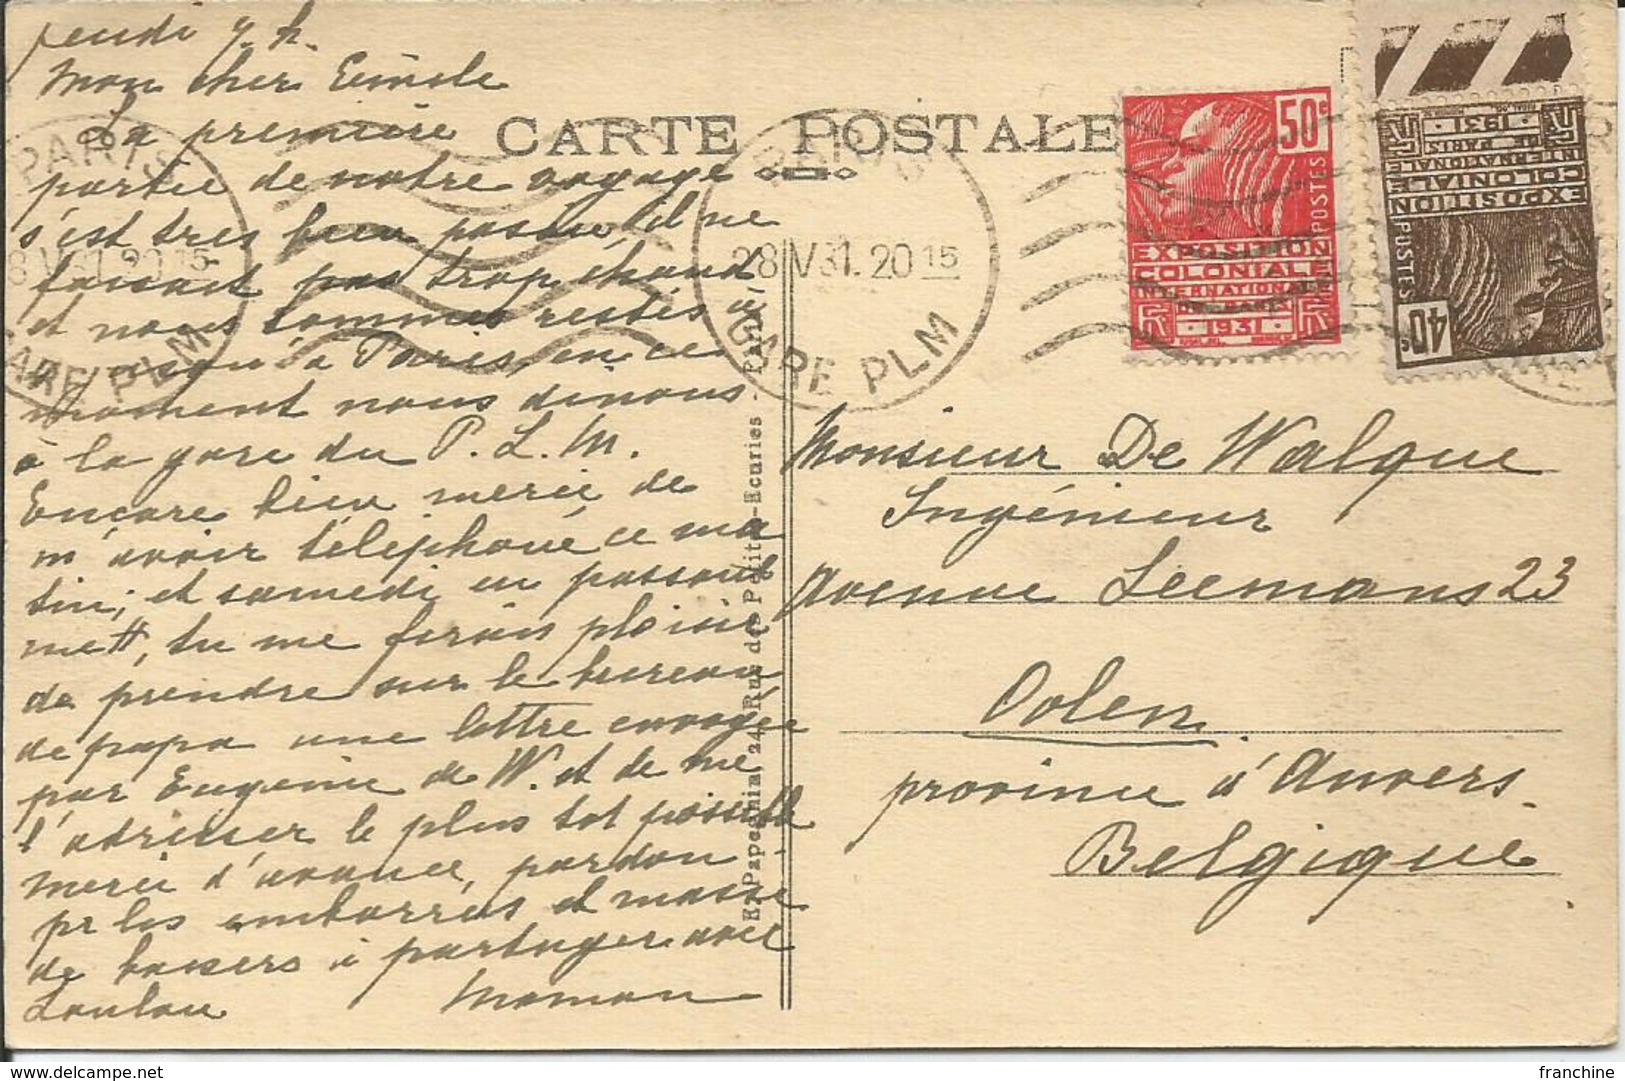 jeudi 7 h.
Mon cher Emile
La première
partie de notre voyage
s'est très bien passée, il ne
faisait pas trop chaud
et nous sommes restés
jusqu'à Paris, en ce
moment nous dinons
à la gare du P. L. M.
Encore bien merci de
m'avoir téléphoné ce ma
tin; et samedi en passant
me tu me ferais plaisir
de prendre sur le bureau
de papa une lettre envoyée
par Eugénie de W. et de me
l'adresser le plus tot possible
merci d'avance, pardon
pr les embarras et masse
de baisers à partager avec
Loulou Maman
CARTE POSTALE
PARIS
28 V 31. 20 15
GARE PLM
PARIS
28 V 31. 20 15
GARE PLM
50c
POSTES
EXPOSITION
COLONIALE
INTERNATIONALE
DE PARIS
RF 1931 RF
40c
POSTES
EXPOSITION
COLONIALE
INTERNATIONALE
DE PARIS
RF 1931 RF
Ec Papeghin, 24, Rue des Petites-Ecuries - Paris
Monsieur De Walque
Ingénieur
Avenue Leemans 23
Oolen
province d'Anvers.
Belgique
franchine
delcampe.net